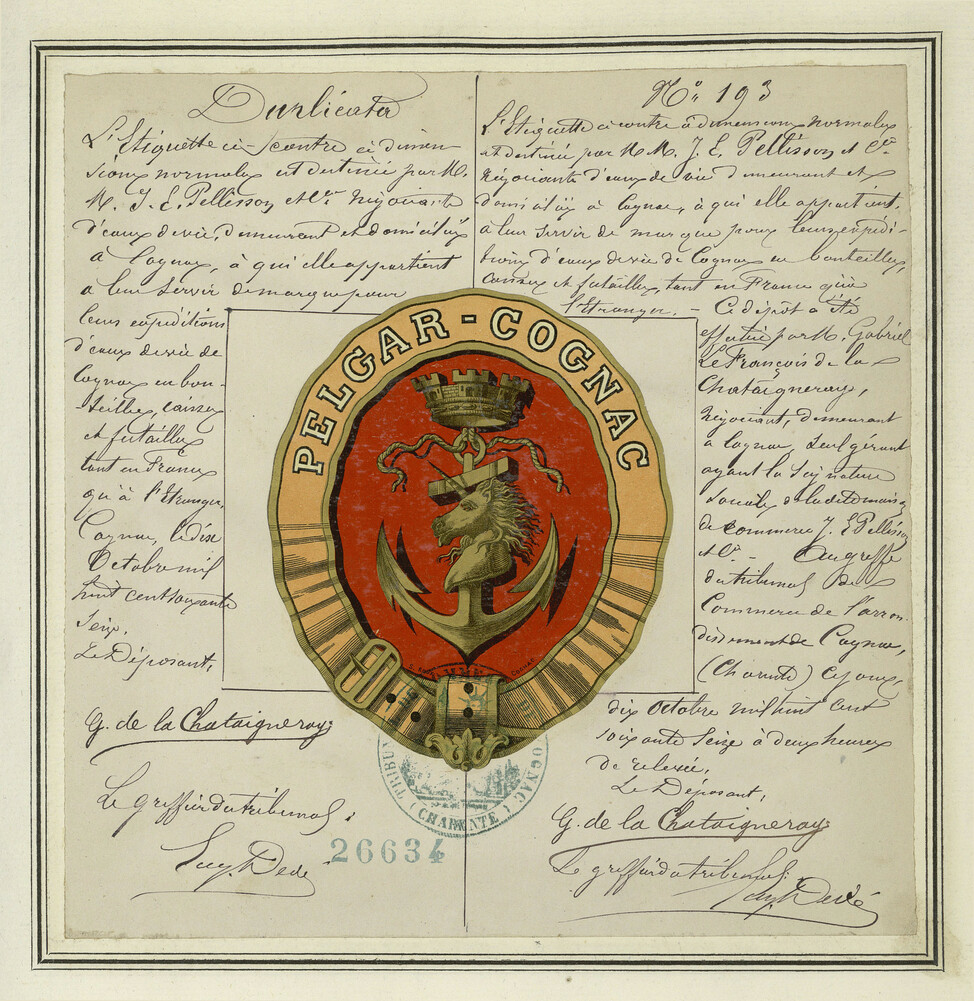 Duplicata
L'Etiquette ci-contre ci dimen
sions normales est destinée par M.
M. J. E. Pellisson et Cie Négociants
d'eaux de vie, demeurant et domiciliés
à Cognac, à qui elle appartient
à leur servir de marque pour
leurs expéditions
d'eaux de vie de
Cognac en bou-
teilles, caisses
et futailles
tant en France
qu'à l'Etranger,
Cognac, le dix
Octobre mil
huit cent soixante
seize.
Le Déposant,
G. de la Chataigneray
Le greffier du tribunal:
26634
No 193
L'Etiquette ci contre à dimensions normales
est destinée par M M. J. E. Pellisson et Cie
Négociants d'eaux de vie demeurant et
domiciliés à Cognac, à qui elle appartient.
à leur servir de marque pour leurs expédi-
tions d'eaux de vie de Cognac en bouteilles,
caisses et futailles, tant en France qu'à
l'Etranger. - Ce dépôt a été
effectué par M. Gabriel
Le François de la
Chataigneray,
Négociant, demeurant
à Cognac, seul gérant
ayant la signature
sociale de la dite maison
de commerce J. E Pellisson
et Cie - Au greffe
du tribunal de
Commerce de l'arron
dissement de Cognac,
(Charente) ce jour,
dix Octobre mil huit cent
soixante seize à deux heures
de relevée,
Le Déposant,
G. de la Chataigneray
Le greffier du tribunal:
PELGAR-COGNAC
COGNAC (CHARENTE)